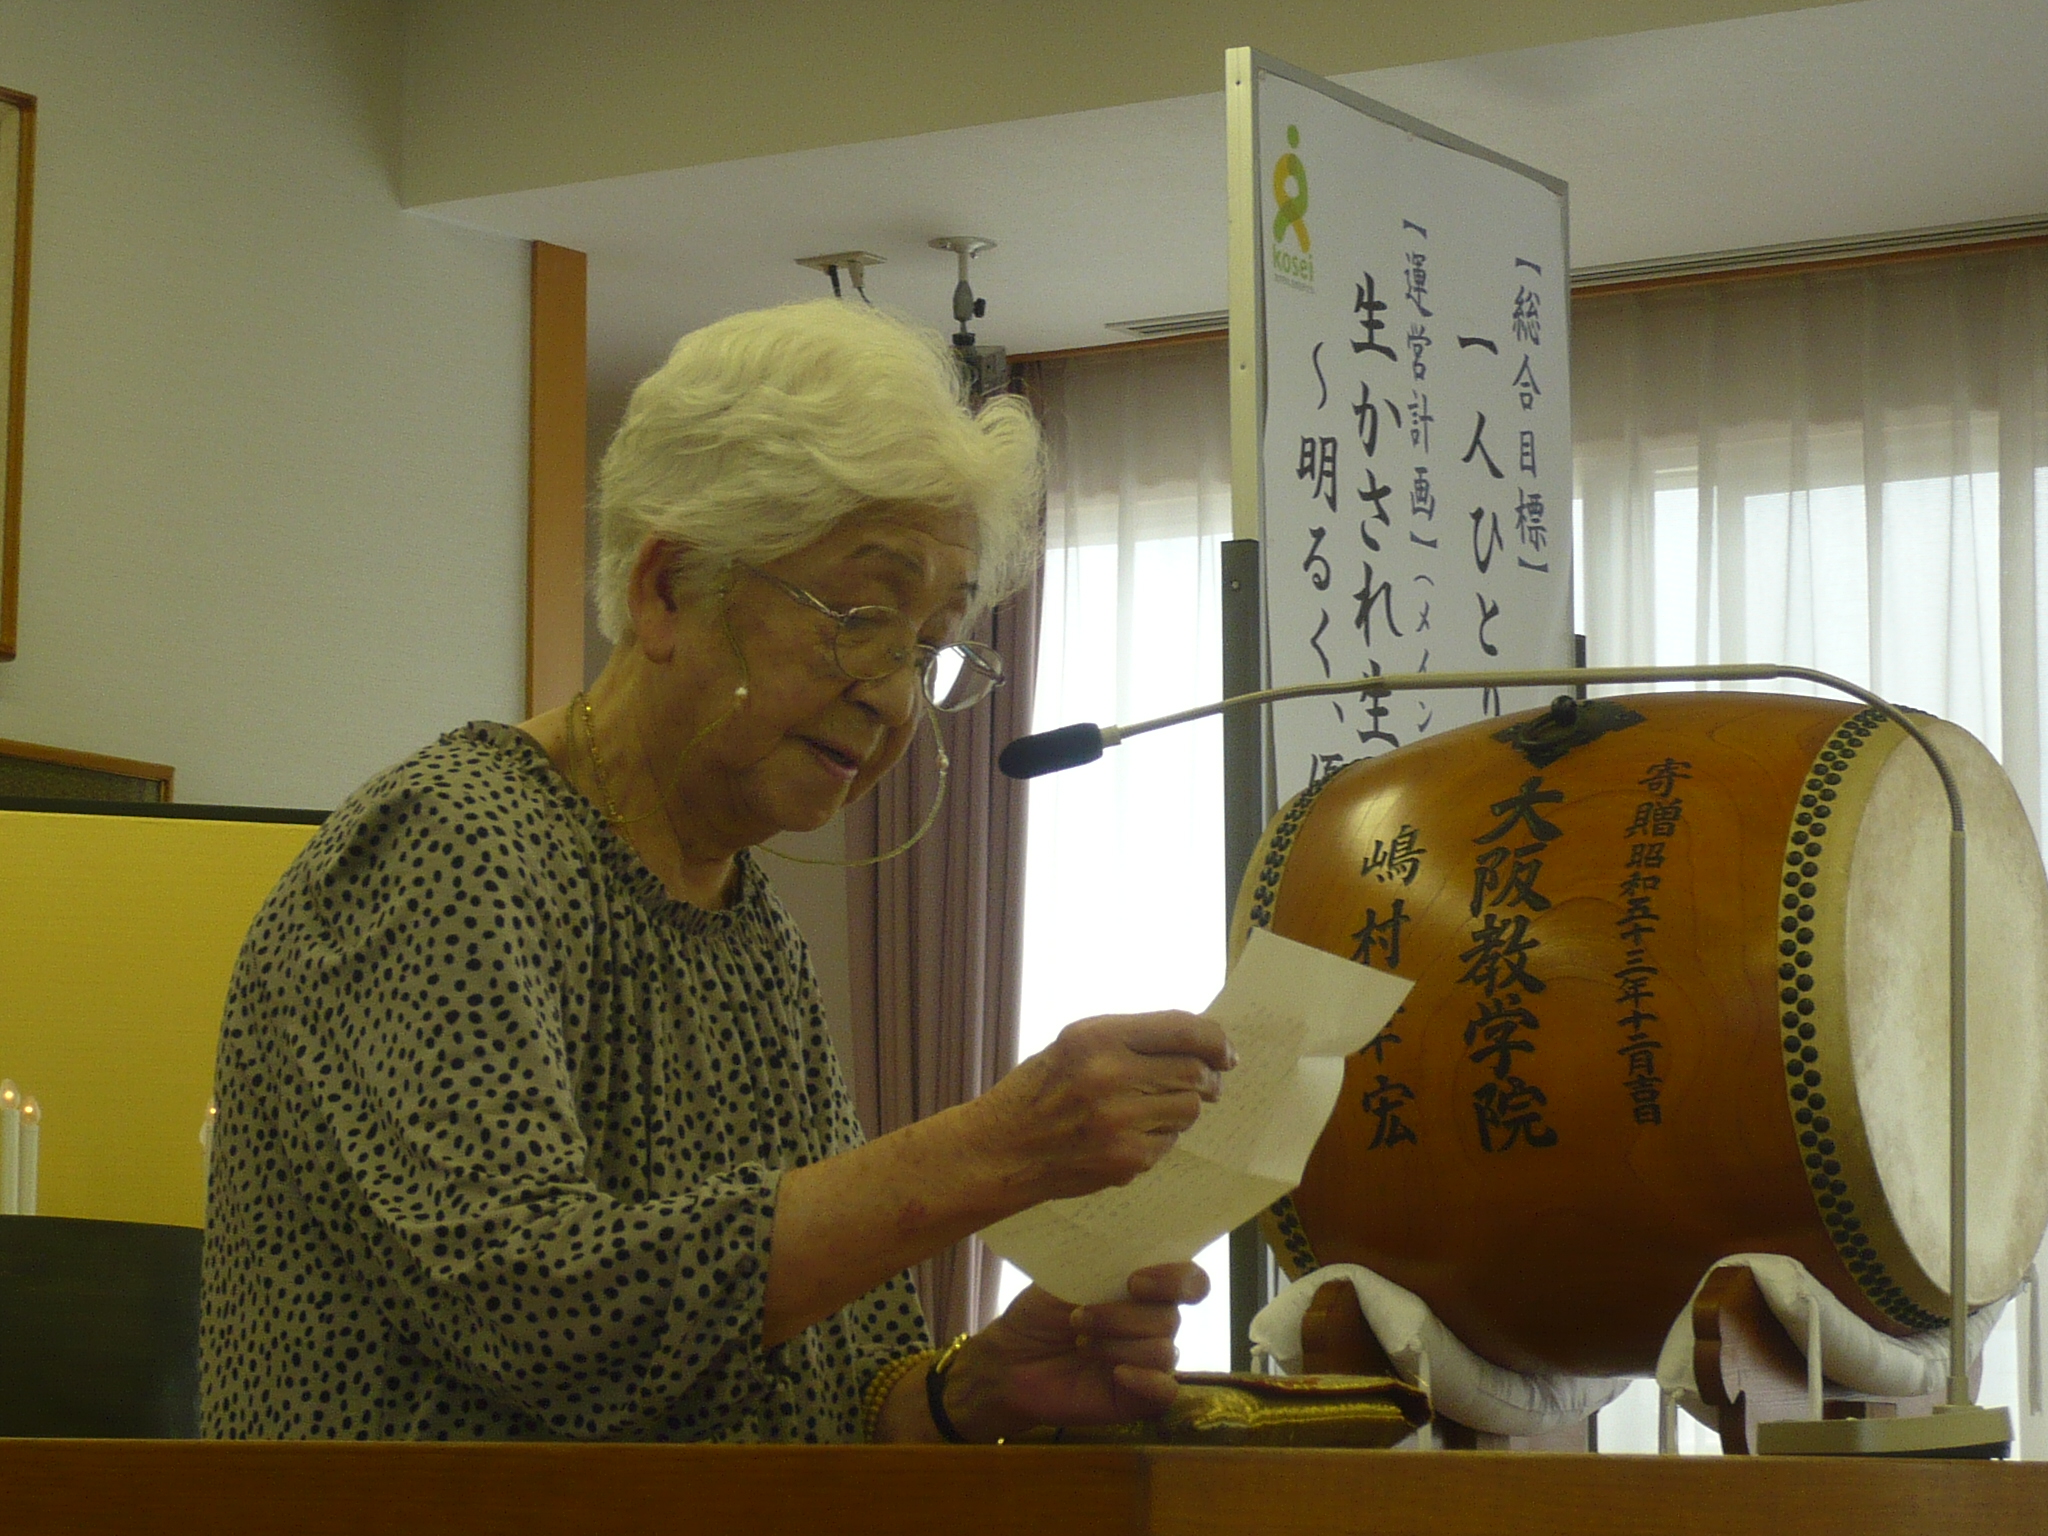 【総合目標】
一人ひとり
【運営計画】(メイン
生かされ生
～明るく、優
kosei
寄贈昭和五十三年十二月吉日
大阪教学院
嶋村
宏